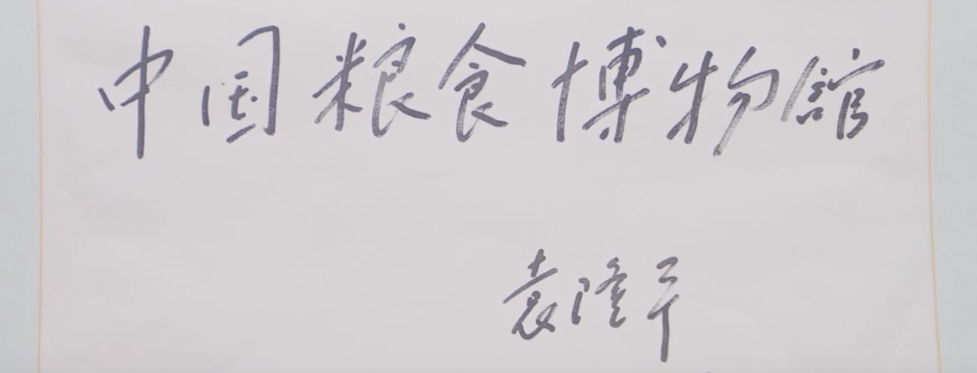 中国粮食博物館
袁隆平